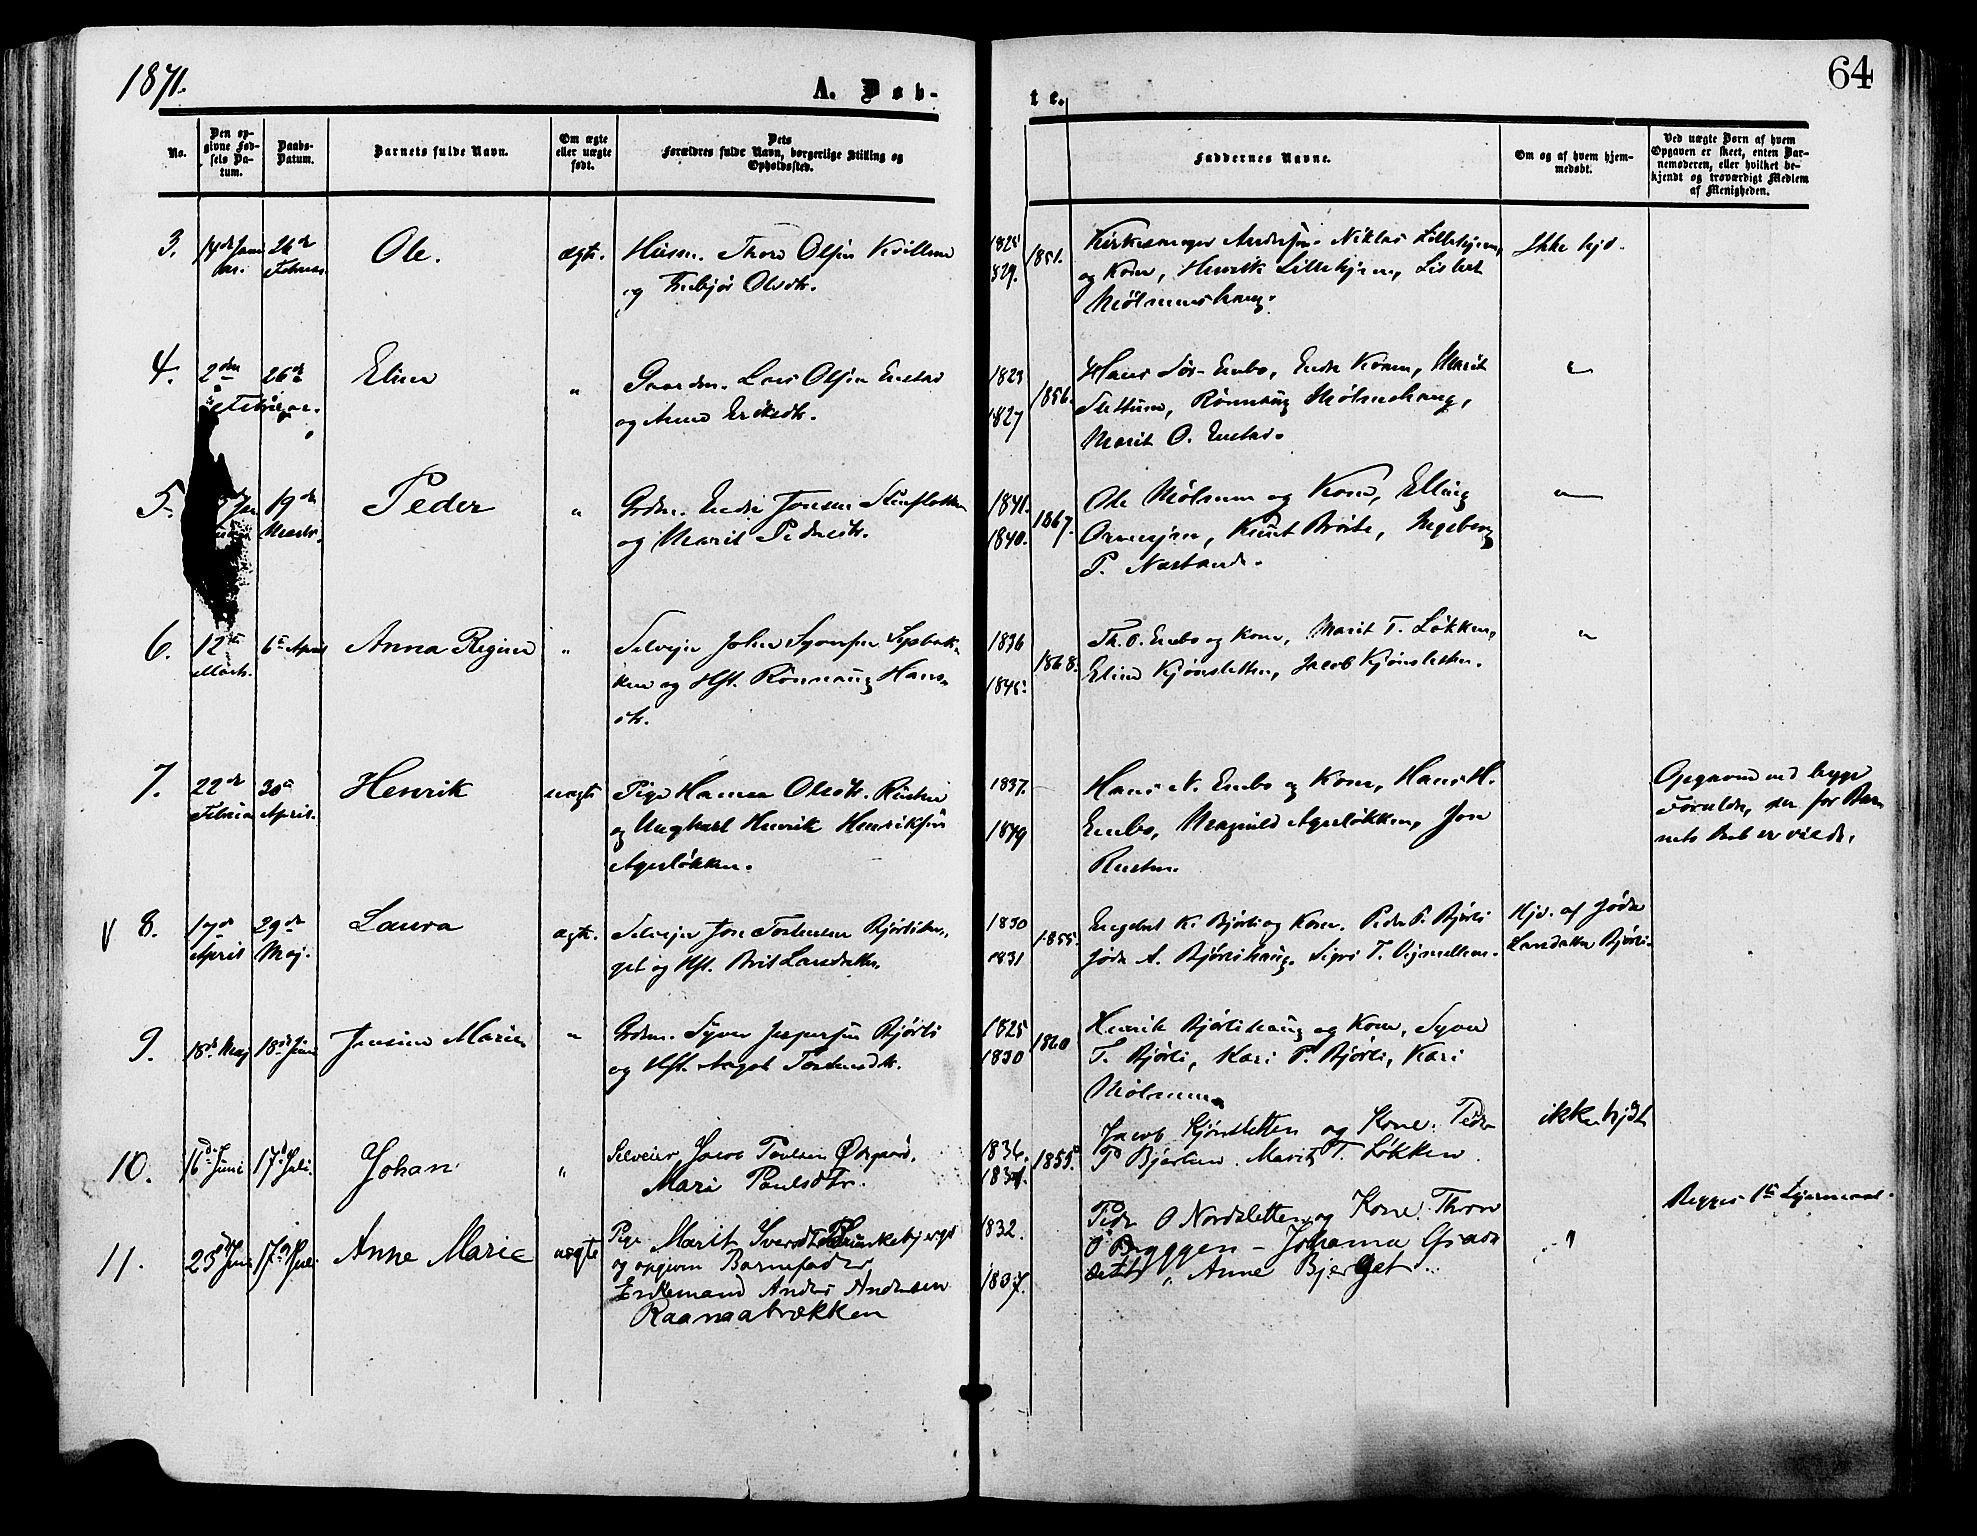 1871.
A. Døb-
te.
64
No.
Den op-
givne Fød-
sels Da-
tum.
Daabs-
Datum.
Barnets fulde Navn.
Om ægte
eller uægte
født.
Dets
Forældres fulde Navn, borgerlige Stilling og
Opholdssted.
Faddernes Navne.
Om og af hvem hjem-
medøbt.
Ved uægte Børn af hvem
Opgaven er skeet, enten Bar-
nemoderen, eller hvilket be-
kjendt og troværdigt Medlem
af Menigheden.
3.
26de
Februar
Ole.
ægte.
Husm. Thore Olsen
og Olsdtr.
1825
1829.
1851.
Kirkesanger Andersen Niklas Lillehjem,
og Kone, Henrik Lillehjem, Lisbet
Mølmenshaug.
Ikke hjd.
4.
2den
Februar.
26de
Eline
"
Gaardm. Lars Olsen Enstad
og Anne Eriksdtr.
1823
1827
1856.
Hans Sør-Enbo, Endre Kvam, Marit
Slettum, Rønnaug Mølmshaug,
Marit O. Enstad.
"
5.
19de
Marts.
Peder
"
Grdm. Endre Jonsen Stenfletten
og Marit Pedersdtr.
1841.
1840.
1867.
Ole Mølmen og Kone, Elling
Knut Brøste, Ingeborg
P.
"
6.
12te
Marts.
6te April
Anna Regine
"
Selveier Johan Syversen
og Hst. Rønnaug Hans-
dtr.
1836
1845.
1868.
Th. O. Enbo og Kone, Marit T. Løkken,
Eline Kjønsletten, Jacob Kjønsletten.
"
7.
22de
Februar
30te
April.
Henrik
uægte
Pige Hanna Olsdtr. Rusten
og Ungkarl Henrik Henriksen
Agerløkken.
1837.
1849
Hans N. Enbo og Kone, Hans H.
Enbo, Magnild Agerløkken, Jon
Rusten.
Opgaven ved begge
Forældre, der for Bar-
nets Daab er viede.
V 8.
17de
April
29de
Maj.
Laura
ægte.
Selveier Jon Torstensen Bjørlihau-
get og Hst. Brit Larsdatter.
1830
1831
1855.
Engebret K. Bjørli og Kone. Peder P. Bjørli
Jøda A. Bjørlihaug. Sigri T.
Hjd. af Jøda
Larsdatter Bjørli.
9.
18de Maj
18de Juni
Jensine Marie.
"
Grdm. Syver Jespersen Bjørli
og Hst. Torstensdtr.
1825
1830
1860
Henrik Bjørlihaug og Kone, Syver
T. Bjørli, Kari P. Bjørli, Kari
Mølmen.
10.
16de Juni
17de Juli.
Johan
"
Selveier Jacob Poulsen Ødegaard,
Mari Paulsdtr.
1836.
1855.
Jacob Kjønsletten og Kone. Peder
P Bjørlien. Marit T. Løkken.
ikke hjdt
11.
23de Juni
17de Juli.
Anne Marie
uægte
Pige Marit Brunkebjerget
og opgiven Barnefader
Enkemand Anders Andersen
Raanaabrækken
1832.
1837.
Peder O Nordsletten og Kone. Thor
O Byggen - Johanna
Anne Bjerget.
"
Begges 1te Leiermaal.